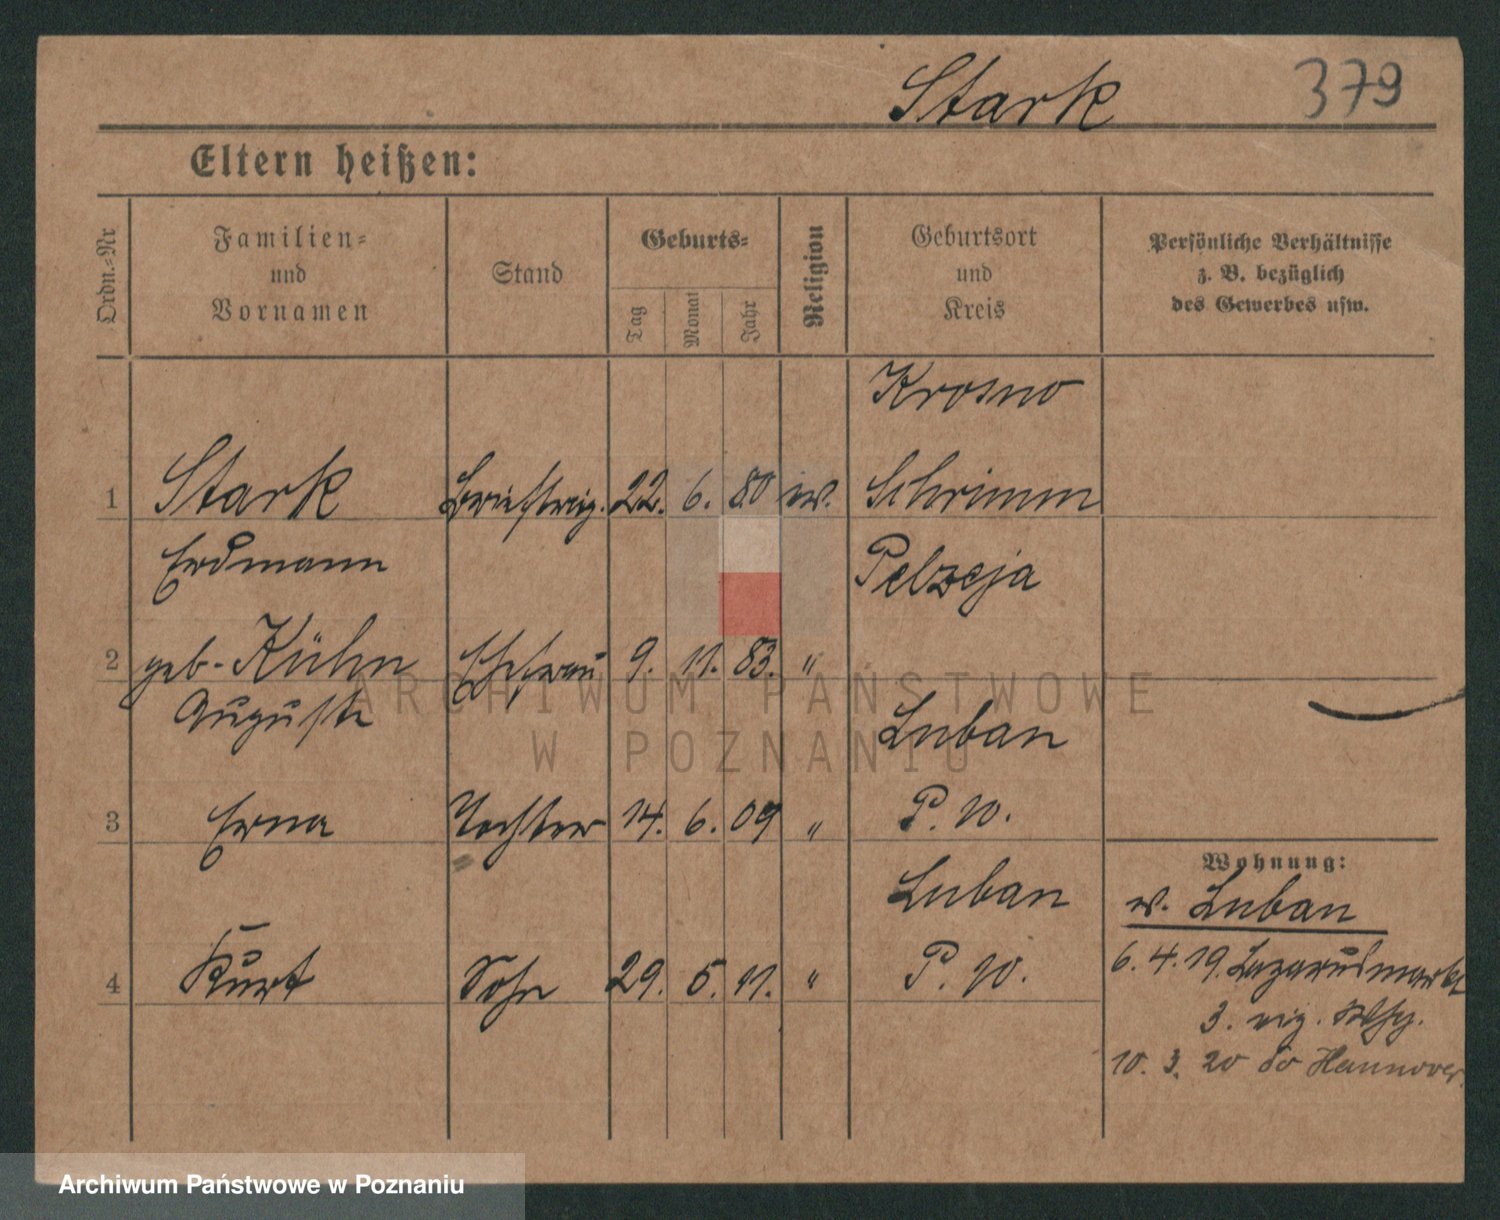 Stark 379
Eltern heißen:
Ordn.-Nr
Familien-
und
Vornamen
Stand
Geburts-
Tag
Monat
Jahr
Religion
Geburtsort
und
Kreis
Persönliche Verhältnisse
z. B. bezüglich
des Gewerbes usw.
Krosno
1 Stark Briefträg. 22. 6. 80 ev. Schrimm
Erdmann
Pelzeja
2 geb. Kühn Ehefrau 9. 11. 83. "
Auguste
Luban
3 Erna Tochter 14. 6. 09 " P. W.
Luban
4 Kurt Sohn 29. 5. 11. " P. W.
Wohnung:
w. Luban
6. 4. 19. Lazarusmarkt
3. eig.
10. 3. 20 Hannover.
ARCHIWUM PAŃSTWOWE
W POZNANIU
Archiwum Państwowe w Poznaniu